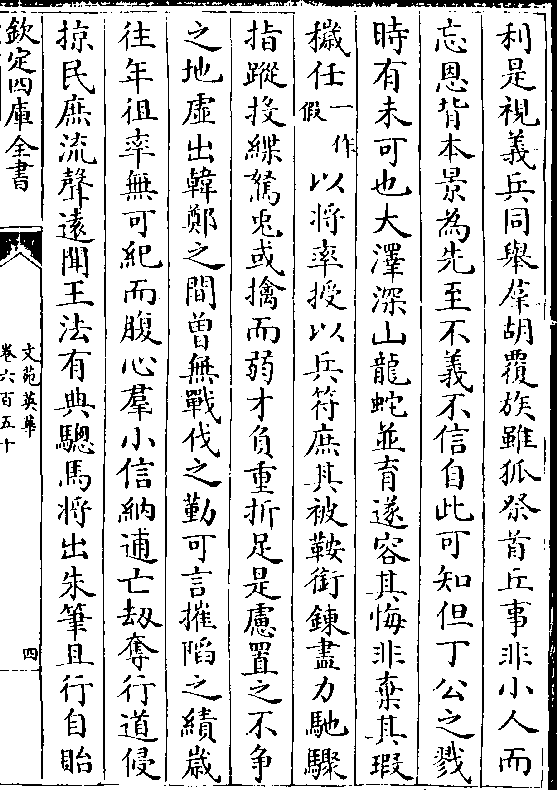 利是視義兵同舉葉胡覆族雖狐祭首丘事非小人而
忘恩背本景為先至不義不信自此可知但丁公之戮
時有未可也大澤深山龍蛇並育遂容其悔非棄其瑕
穢任一作假以將率授以兵符庶其被鞍銜鍊盡力馳驟
指蹤投緤駑兎或擒而弱才負重折足是慮置之不争
之地虛出韓鄭之間曾無戰伐之勤可言摧陷之績歳
往年徂率無可紀而腹心羣小信納逋亡刼奪行道侵
掠民庶流聲遠聞王法有典驄馬將出朱筆且行自貽
欽定四庫全書
文苑英華
卷六百五十
四